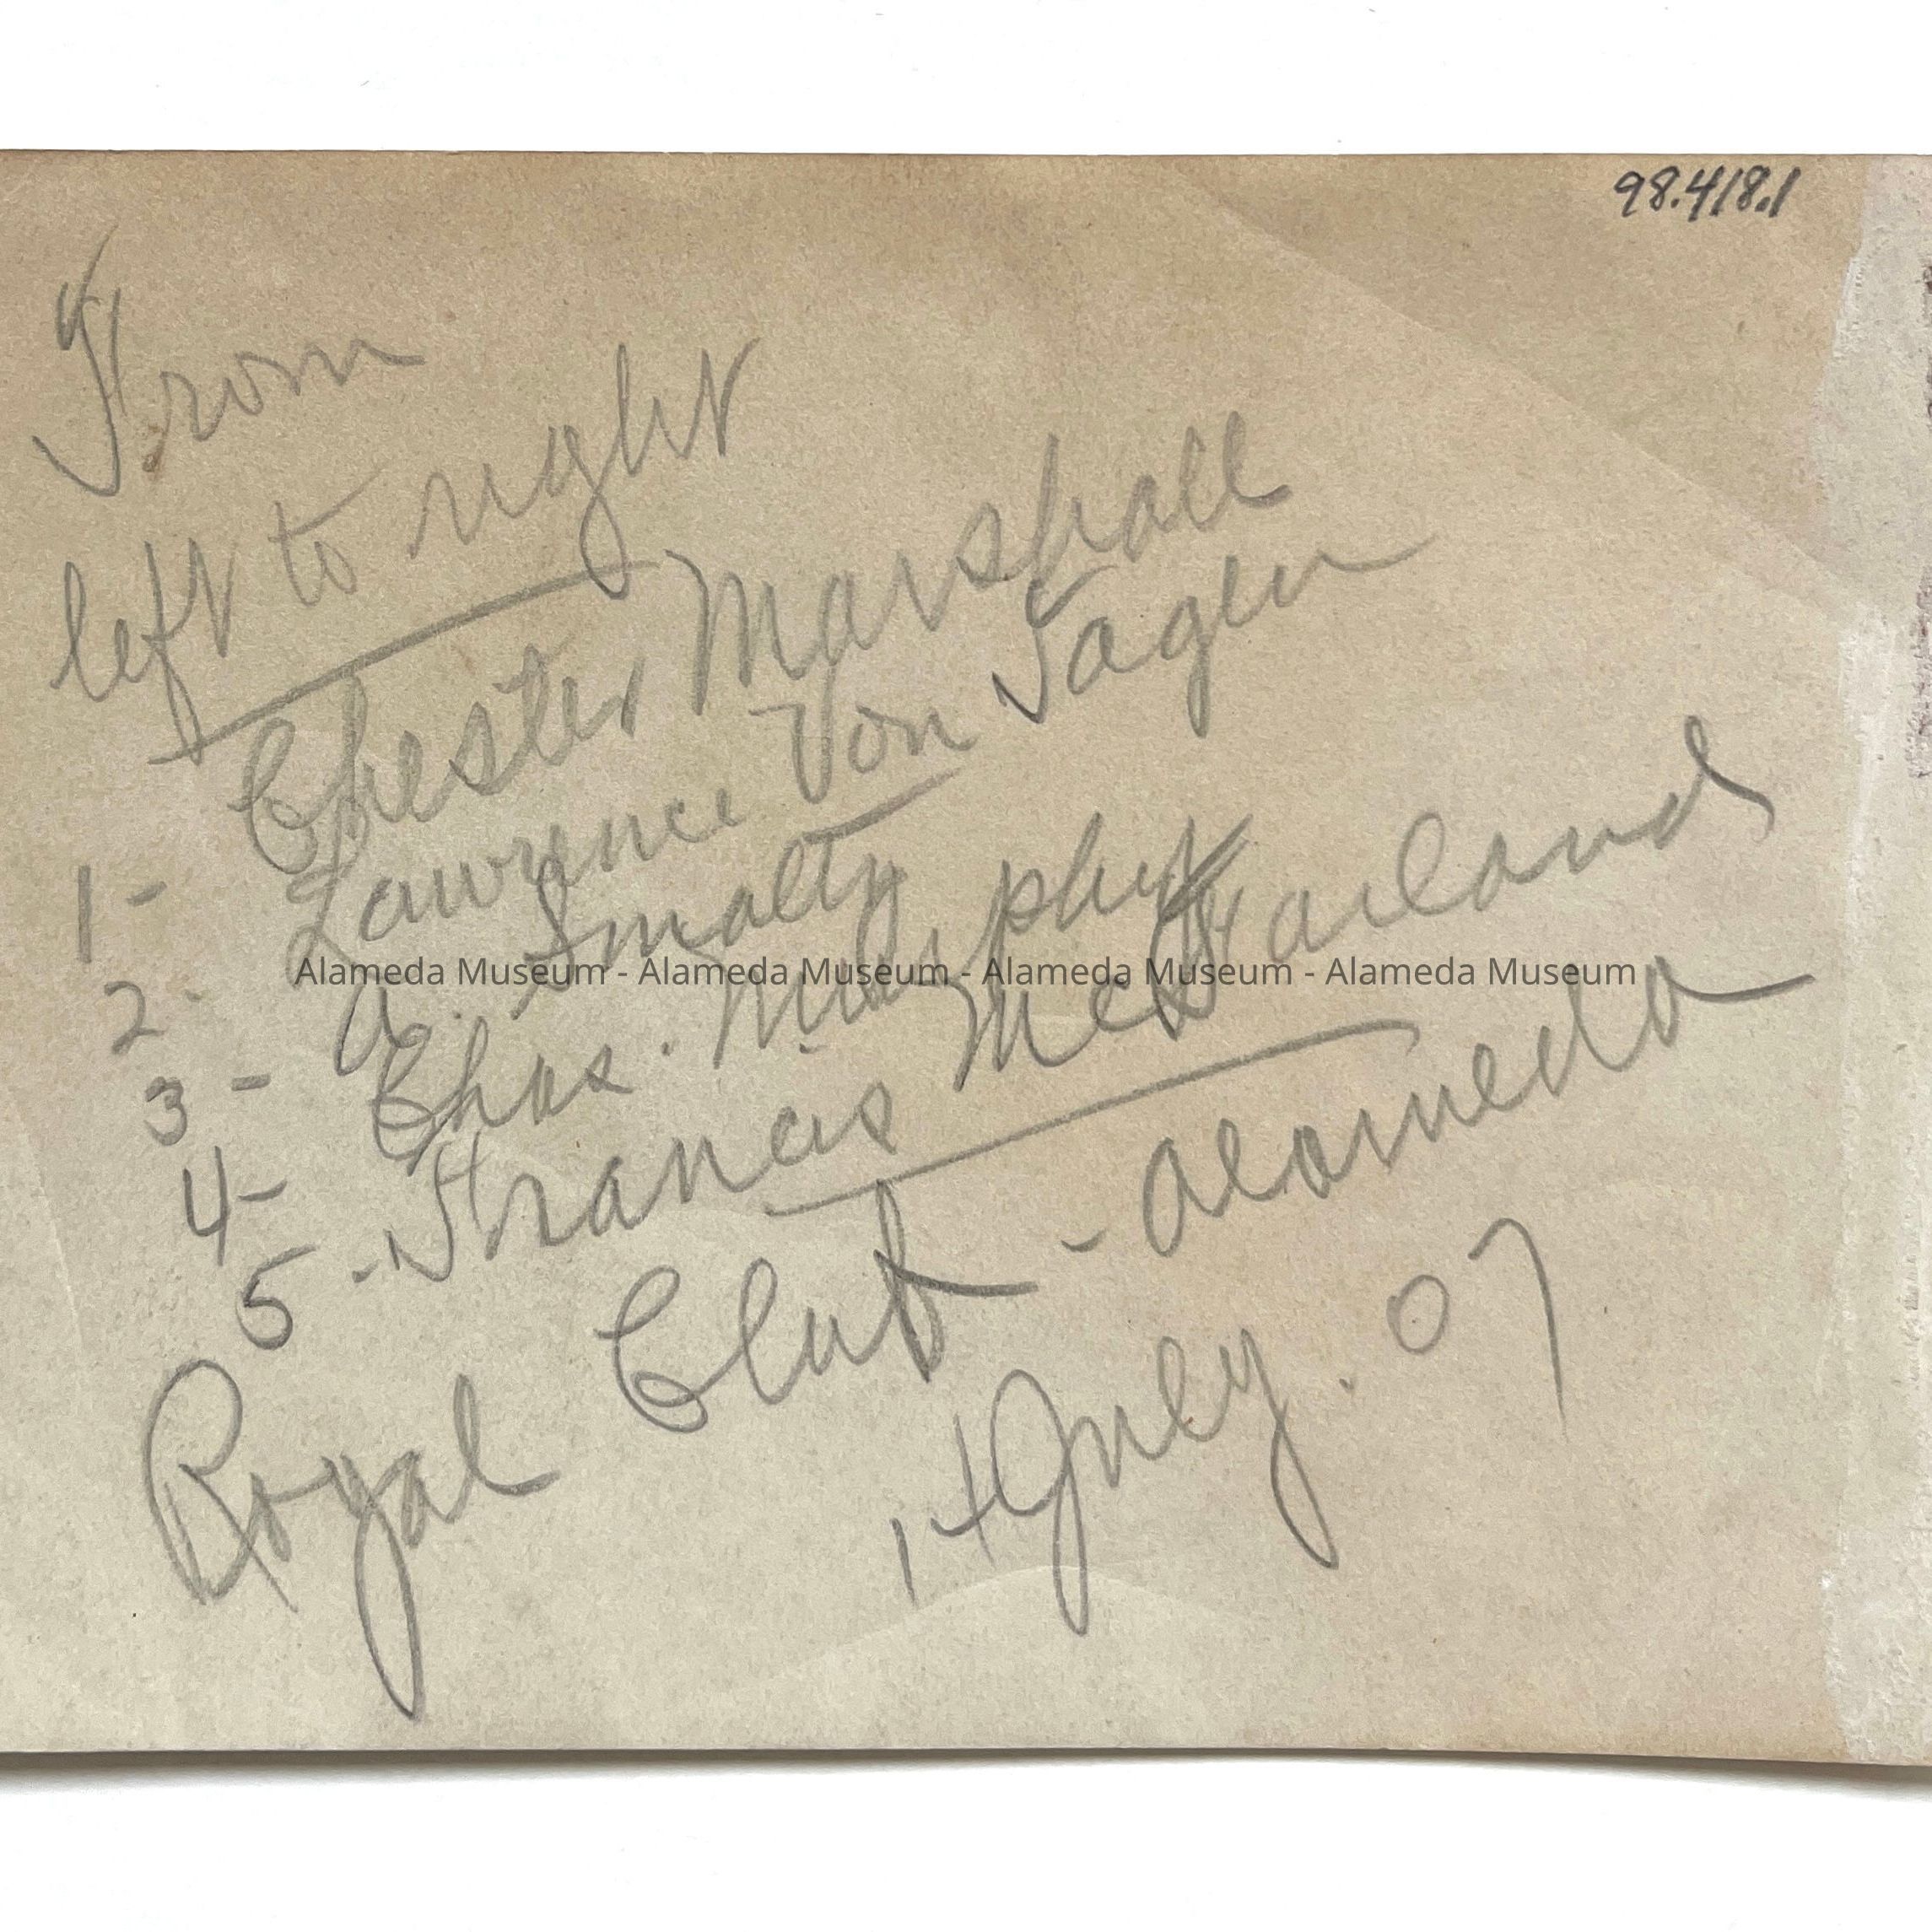 98.418.1
From
left to right
1- Chester Marshall
2- Lawrence Von Tagen
3- A. Smalty
4- Chas. Murphy
5- Francis McFarland
Royal Club - Alameda
July. 07
Alameda Museum - Alameda Museum - Alameda Museum - Alameda Museum